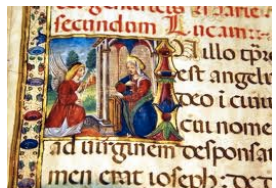 secundum Lucam:
N illo tp̄re
est angelu
deo i ciui
cui nome
ad uirginem desponsat
men erat ioseph: De